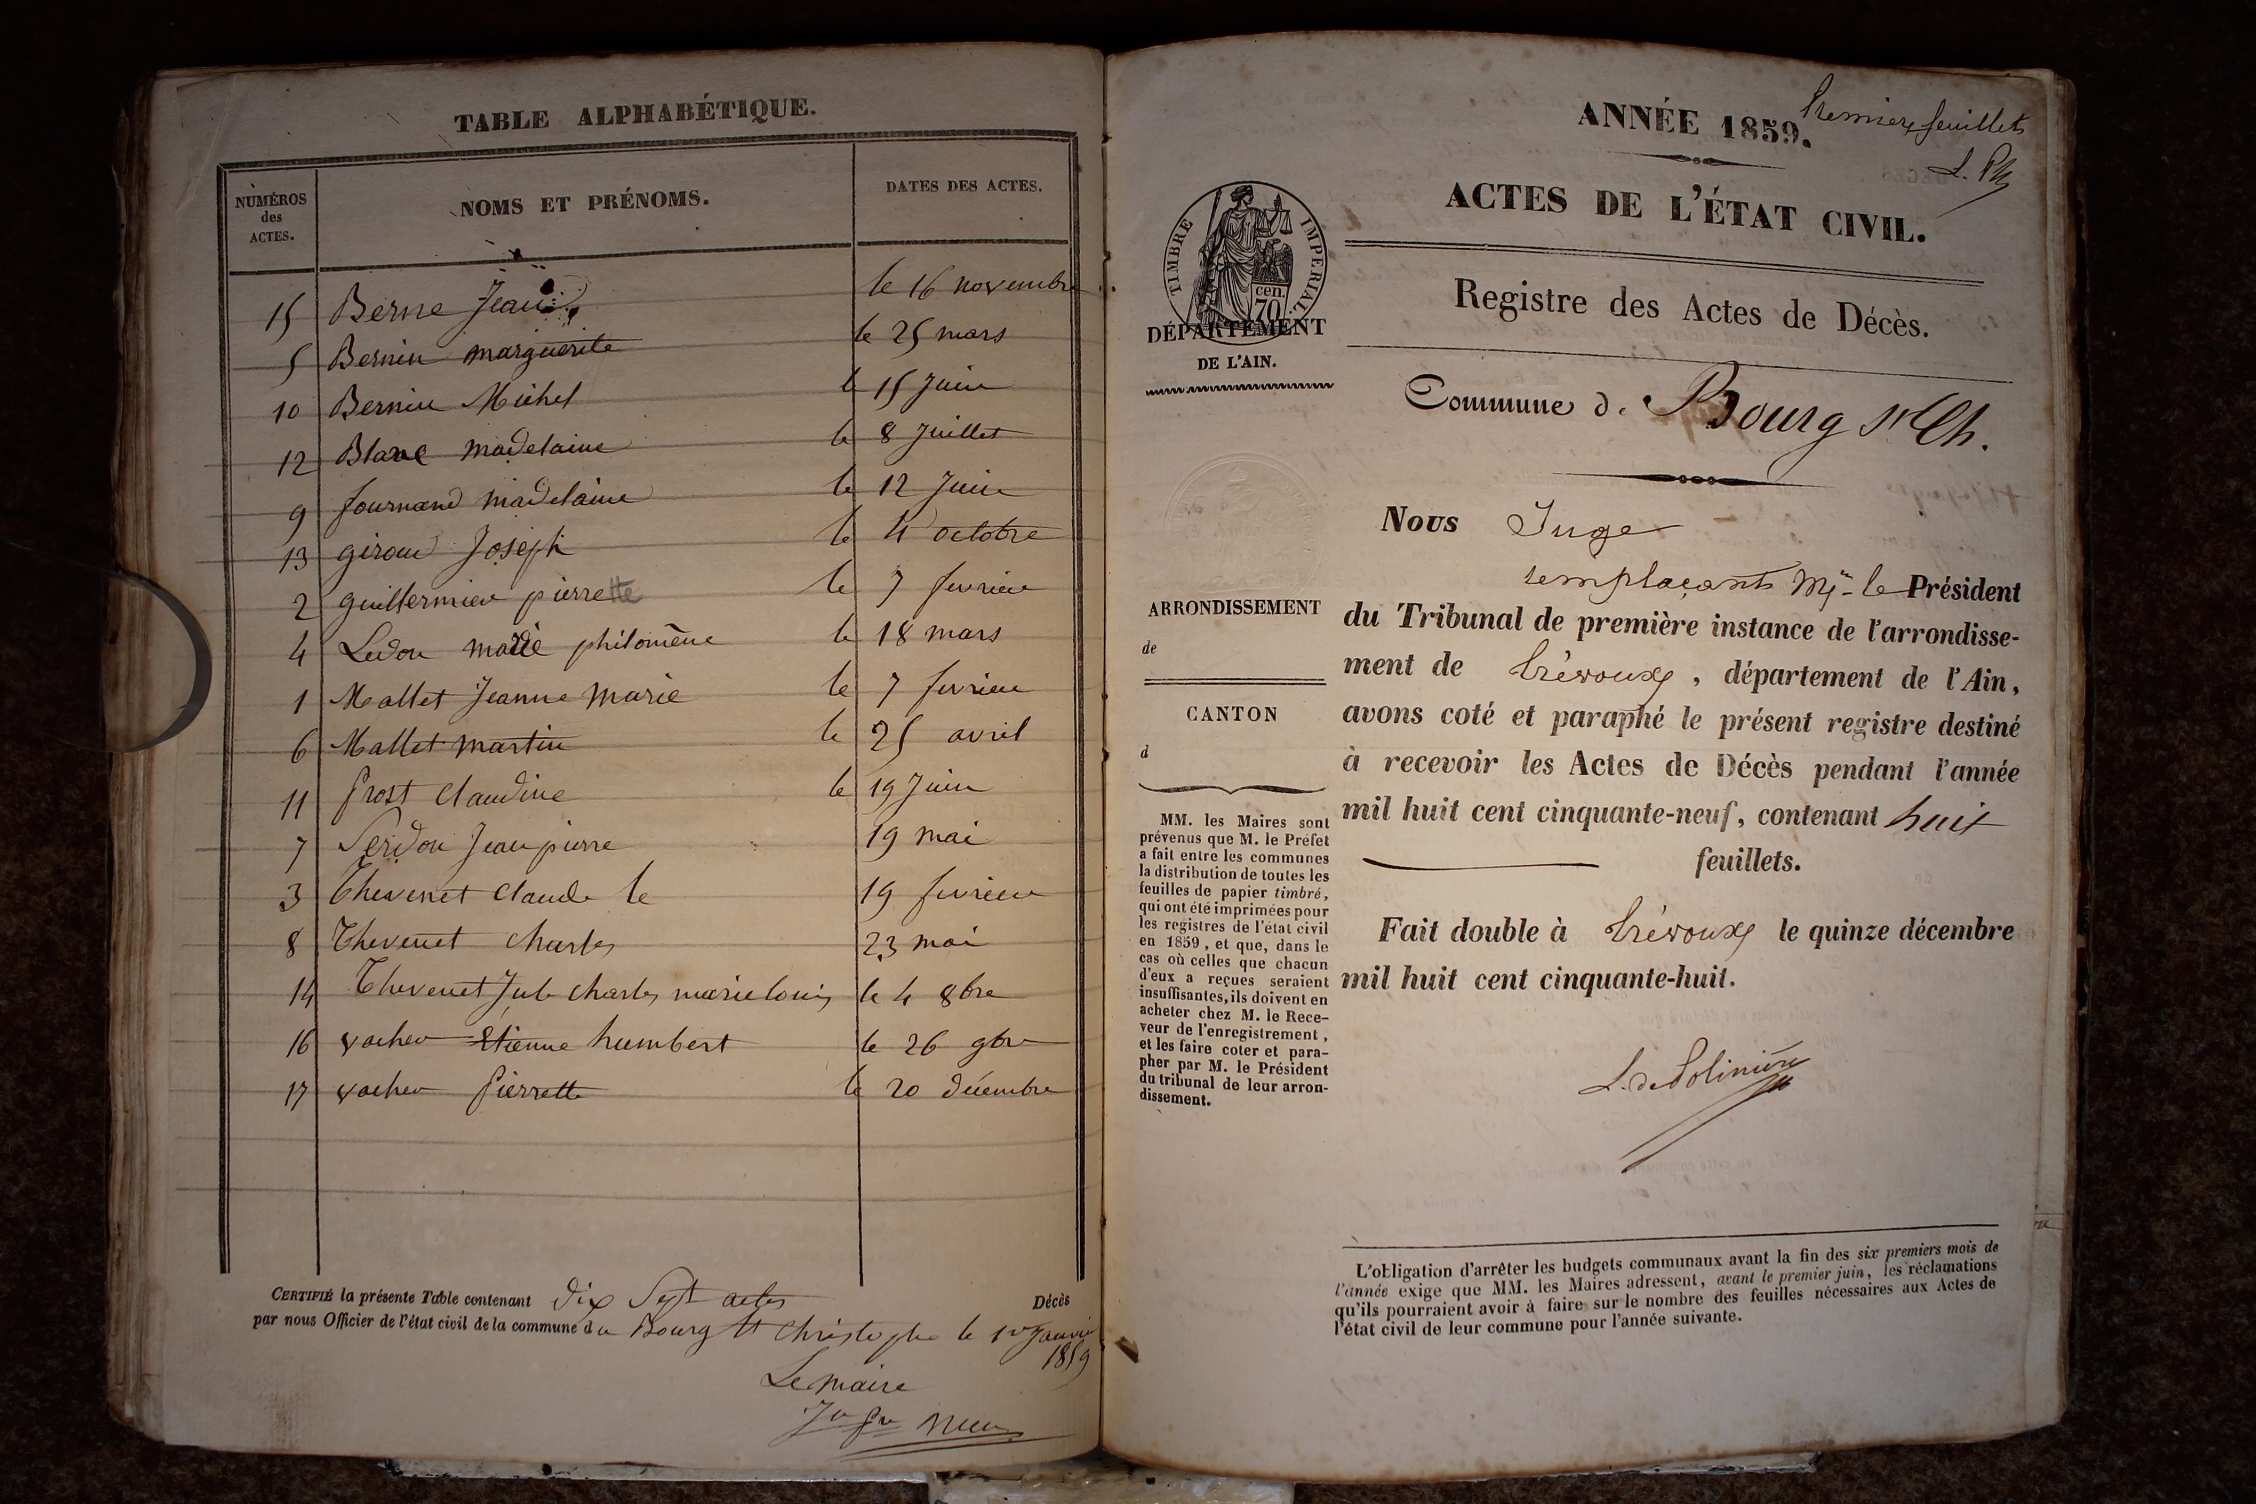 TABLE ALPHABÉTIQUE.
NUMÉROS des ACTES. NOMS ET PRÉNOMS. DATES DES ACTES.
15 Berne Jean le 16 novembre
5 Bernin marguerite le 25 mars
10 Bernin Michel le 15 Juin
12 Blanc madelaine le 8 Juillet
9 fournand madelaine le 12 Juin
13 giroud Joseph le 4 octobre
2 guillermin pierrette le 7 fevrier
4 Ludon marie philomène le 18 mars
1 Mallet Jeanne Marie le 7 fevrier
6 Mallet martin le 25 avril
11 prost Claudine le 19 Juin
7 Serdon Jean pierre 19 mai
3 Thevenet Claude le 19 fevrier
8 Thevenet charles 23 mai
14 Thevenet Jule charles marie louis le 4 8bre
16 vacher Etienne humbert le 26 9bre
17 vacher Pierrette le 20 décembre
CERTIFIÉ la présente Table contenant dix Sept actes Décès
par nous Officier de l'état civil de la commune du Bourg St Christophe le 1er Janvier
1859
Le maire
ANNÉE 1859.
Premier feuillet
ACTES DE L'ÉTAT CIVIL.
TIMBRE IMPÉRIAL.
cen.
70
DÉPARTEMENT
DE L'AIN.
Registre des Actes de Décès.
Commune de Bourg St Ch.
ARRONDISSEMENT
de
CANTON
d
MM. les Maires sont
prévenus que M. le Préfet
a fait entre les communes
la distribution de toutes les
feuilles de papier timbré,
qui ont été imprimées pour
les registres de l'état civil
en 1859, et que, dans le
cas où celles que chacun
d'eux a reçues seraient
insuffisantes, ils doivent en
acheter chez M. le Rece-
veur de l'enregistrement,
et les faire coter et para-
pher par M. le Président
du tribunal de leur arron-
dissement.
Nous Juge
remplaçant Mr le Président
du Tribunal de première instance de l'arrondisse-
ment de Trévoux, département de l'Ain,
avons coté et paraphé le présent registre destiné
à recevoir les Actes de Décès pendant l'année
mil huit cent cinquante-neuf, contenant huit
feuillets.
Fait double à Trévoux le quinze décembre
mil huit cent cinquante-huit.
L. de Polinière
L'obligation d'arrêter les budgets communaux avant la fin des six premiers mois de
l'année exige que MM. les Maires adressent, avant le premier juin, les réclamations
qu'ils pourraient avoir à faire sur le nombre des feuilles nécessaires aux Actes de
l'état civil de leur commune pour l'année suivante.